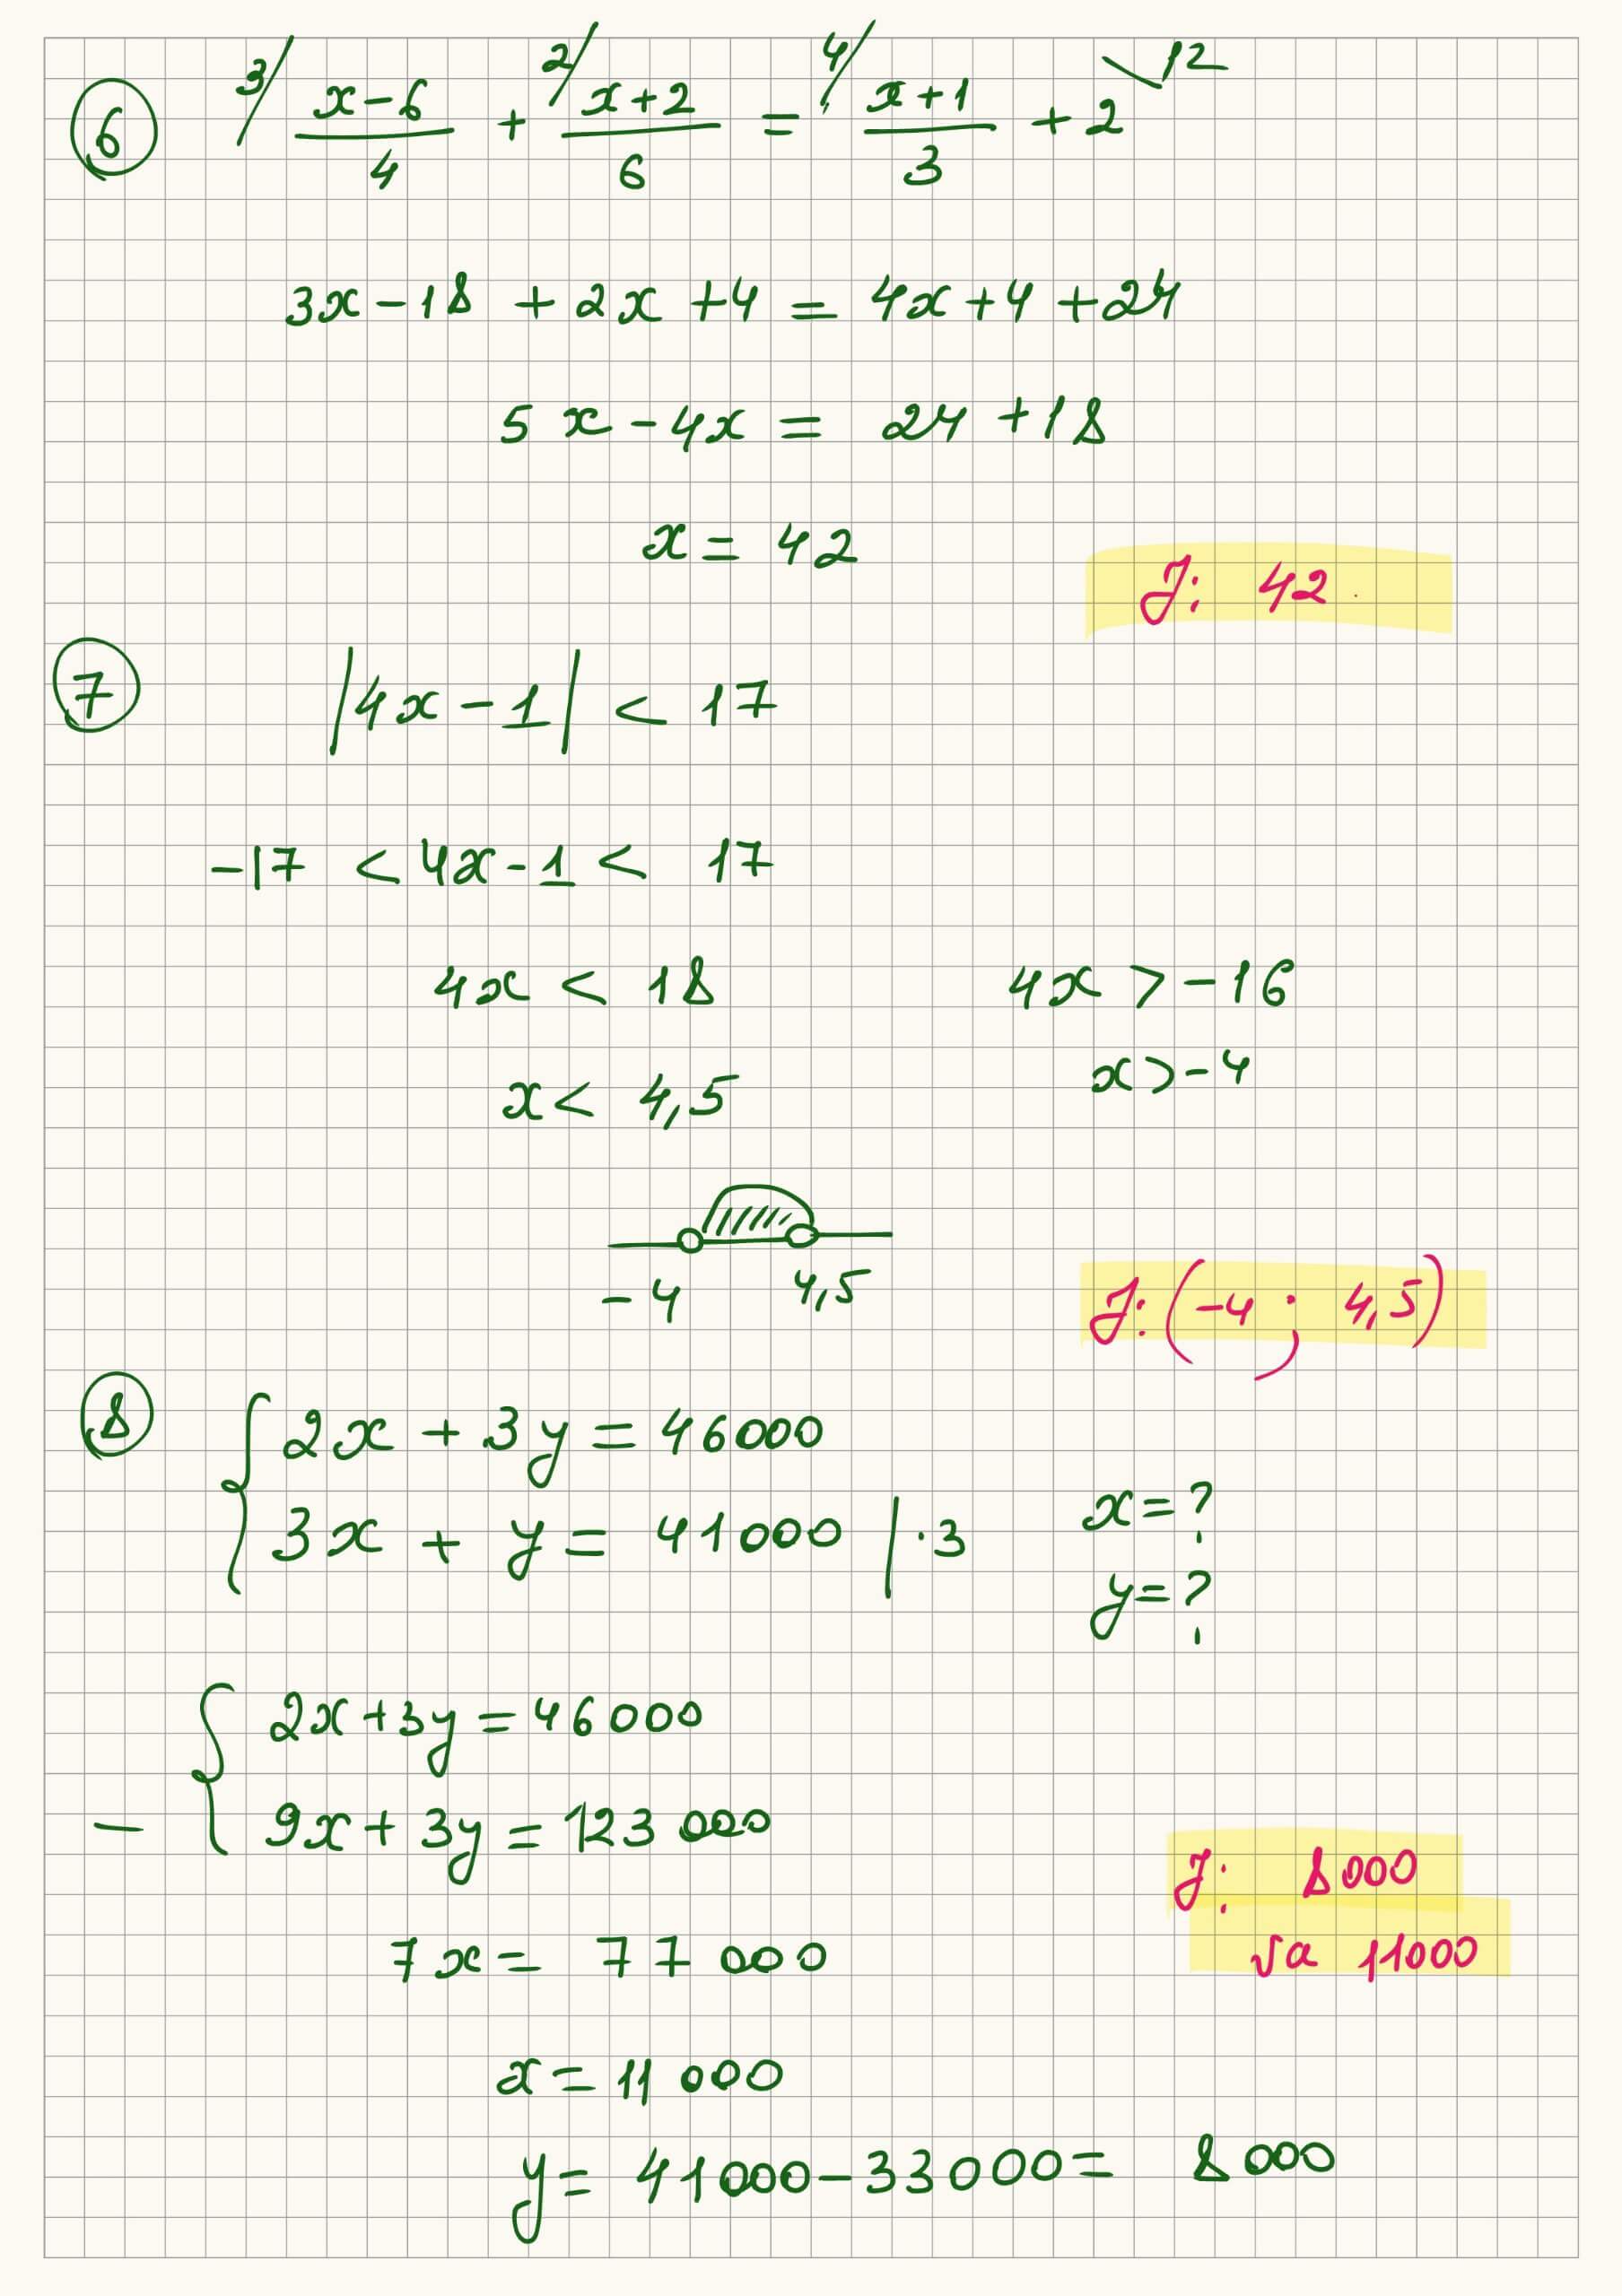 6) 3/ (x-6)/4 + 2/ (x+2)/6 = 4/ (x+1)/3 + 2 \12
3x - 18 + 2x + 4 = 4x + 4 + 24
5x - 4x = 24 + 18
x = 42
J: 42.
7) |4x - 1| < 17
-17 < 4x - 1 < 17
4x < 18    4x > -16
x < 4,5    x > -4
-4    4,5
J: (-4 ; 4,5)
8) { 2x + 3y = 46000
3x + y = 41000 | ·3
x = ?
y = ?
{ 2x + 3y = 46000
- 9x + 3y = 123 000
7x = 77 000
J: 8000
və 11000
x = 11 000
y = 41000 - 33000 = 8000